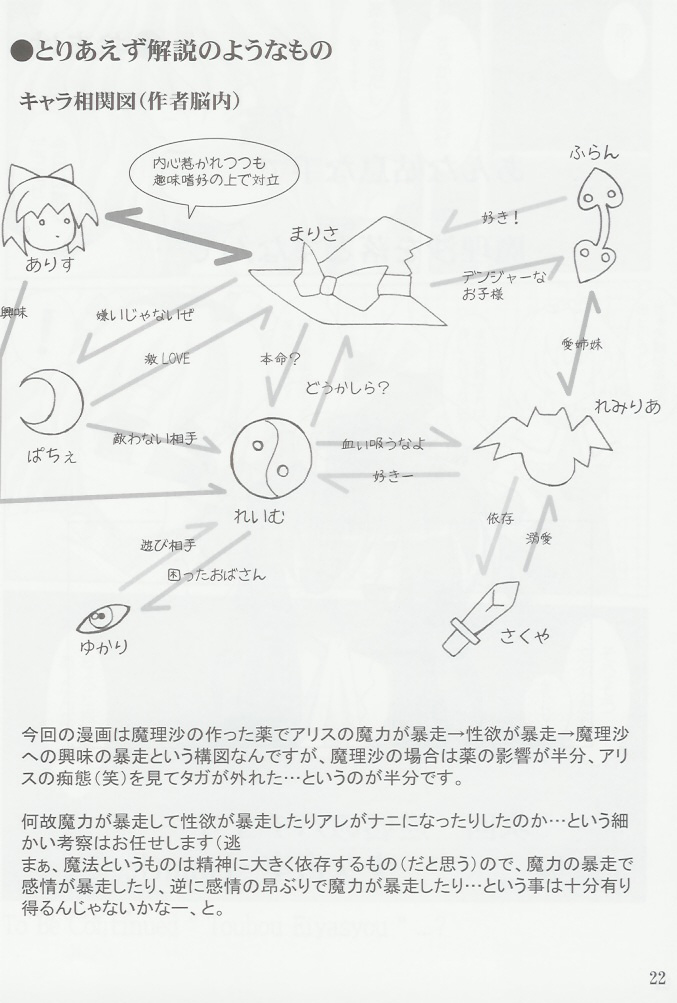 ●とりあえず解説のようなもの
キャラ相関図(作者脳内)
内心惹かれつつも
趣味嗜好の上で対立
ふらん
好き!
まりさ
ありす
デンジャーな
お子様
興味
嫌いじゃないぜ
激LOVE
本命?
どうかしら?
愛姉妹
れみりあ
ぱちぇ
敵わない相手
血い吸うなよ
好きー
れいむ
依存
溺愛
遊び相手
困ったおばさん
ゆかり
さくや
今回の漫画は魔理沙の作った薬でアリスの魔力が暴走→性欲が暴走→魔理沙
への興味の暴走という構図なんですが、魔理沙の場合は薬の影響が半分、アリ
スの痴態(笑)を見てタガが外れた…というのが半分です。
何故魔力が暴走して性欲が暴走したりアレがナニになったりしたのか…という細
かい考察はお任せします(逃
まぁ、魔法というものは精神に大きく依存するもの(だと思う)ので、魔力の暴走で
感情が暴走したり、逆に感情の昂ぶりで魔力が暴走したり…という事は十分有り
得るんじゃないかなー、と。
22